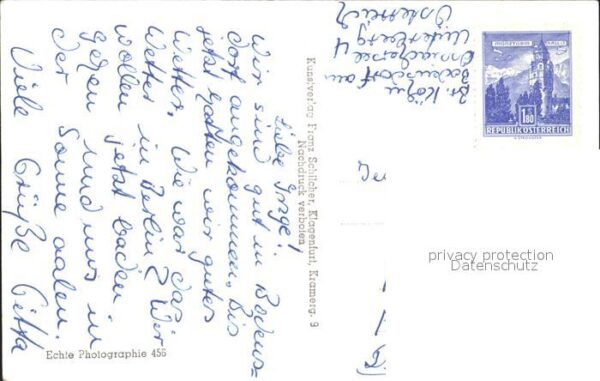 Liebe Inge!
Wir sind gut in Bodens-
dorf angekommen. Bis
jetzt hatten wir gutes
Wetter. Wie war das
Wetter in Berlin? Wir
wollen jetzt baden
gehen und uns in
der Sonne aalen.
Viele Grüße Gitta
Bodensdorf am
Österreich
Kunstverlag Franz Schilcher, Klagenfurt, Kramerg. 9
Nachdruck verboten
Echte Photographie 456
1.80
REPUBLIK ÖSTERREICH
privacy protection
Datenschutz